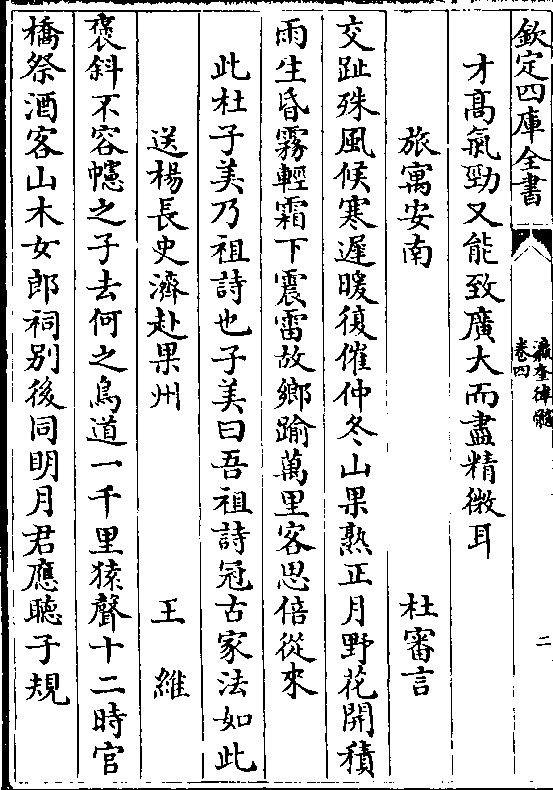 欽定四庫全書
瀛奎律髓
卷四
二
才髙氣勁又能致廣大而盡精微耳
旅寓安南
杜審言
交趾殊風候寒遲暖復催仲冬山果熟正月野花開積
雨生昏霧輕霜下震雷故鄉踰萬里客思倍從來
此杜子美乃祖詩也子美曰吾祖詩冠古家法如此
送楊長史濟赴果州
王維
褒斜不容幰之子去何之鳥道一千里猿聲十二時官
橋祭酒客山木女郎祠别後同明月君應聽子規